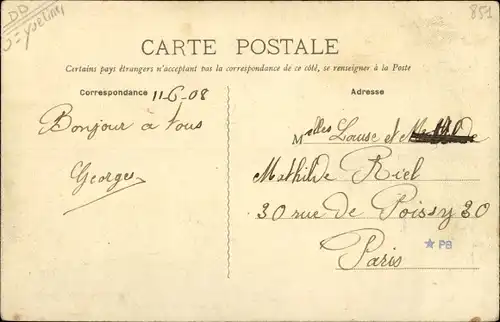 DD
Yvelines
851
CARTE POSTALE
Certains pays étrangers n'acceptant pas la correspondance de ce côté, se renseigner à la Poste
Correspondance 11-6-08
Adresse
Bonjour à tous
Georges
Melles Louise et
Mathilde Riel
30 rue de Poissy 30
Paris
★ PB